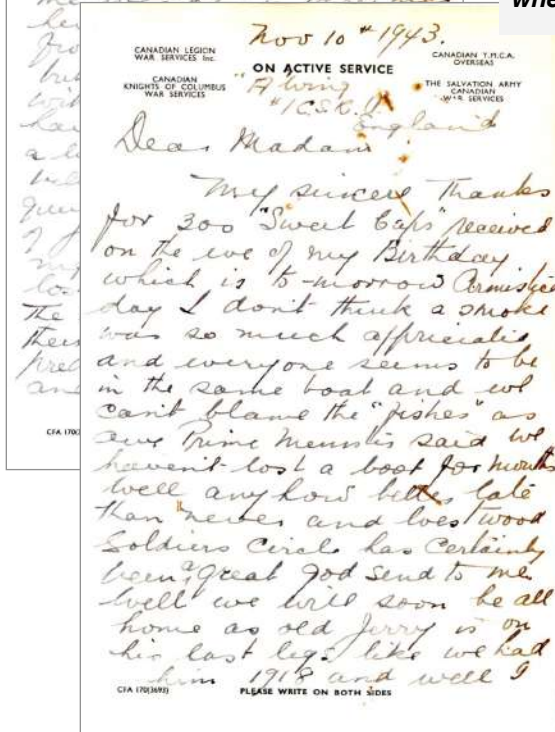 whe
Nov 10th 1943.
CANADIAN LEGION
WAR SERVICES Inc.
CANADIAN
KNIGHTS OF COLUMBUS
WAR SERVICES
ON ACTIVE SERVICE
CANADIAN Y.M.C.A.
OVERSEAS
THE SALVATION ARMY
CANADIAN
WAR SERVICES
"A" Wing
England
Dear Madam
My sincere thanks
for 300 "Sweet Caps" received
on the eve of my Birthday
which is to-morrow Armistice
day I don't think a smoke
was so much
and everyone seems to be
in the same boat and we
can't blame the "fishes" as
our Prime said we
haven't lost a boat for months
well anyhow better late
than never and
Soldiers Circle has Certainly
been a great God send to me.
Well we will soon be all
home as old Jerry is on
his last legs like we had
him 1918 and well I
CFA 170(3693)
PLEASE WRITE ON BOTH SIDES
The
and
CFA 170(